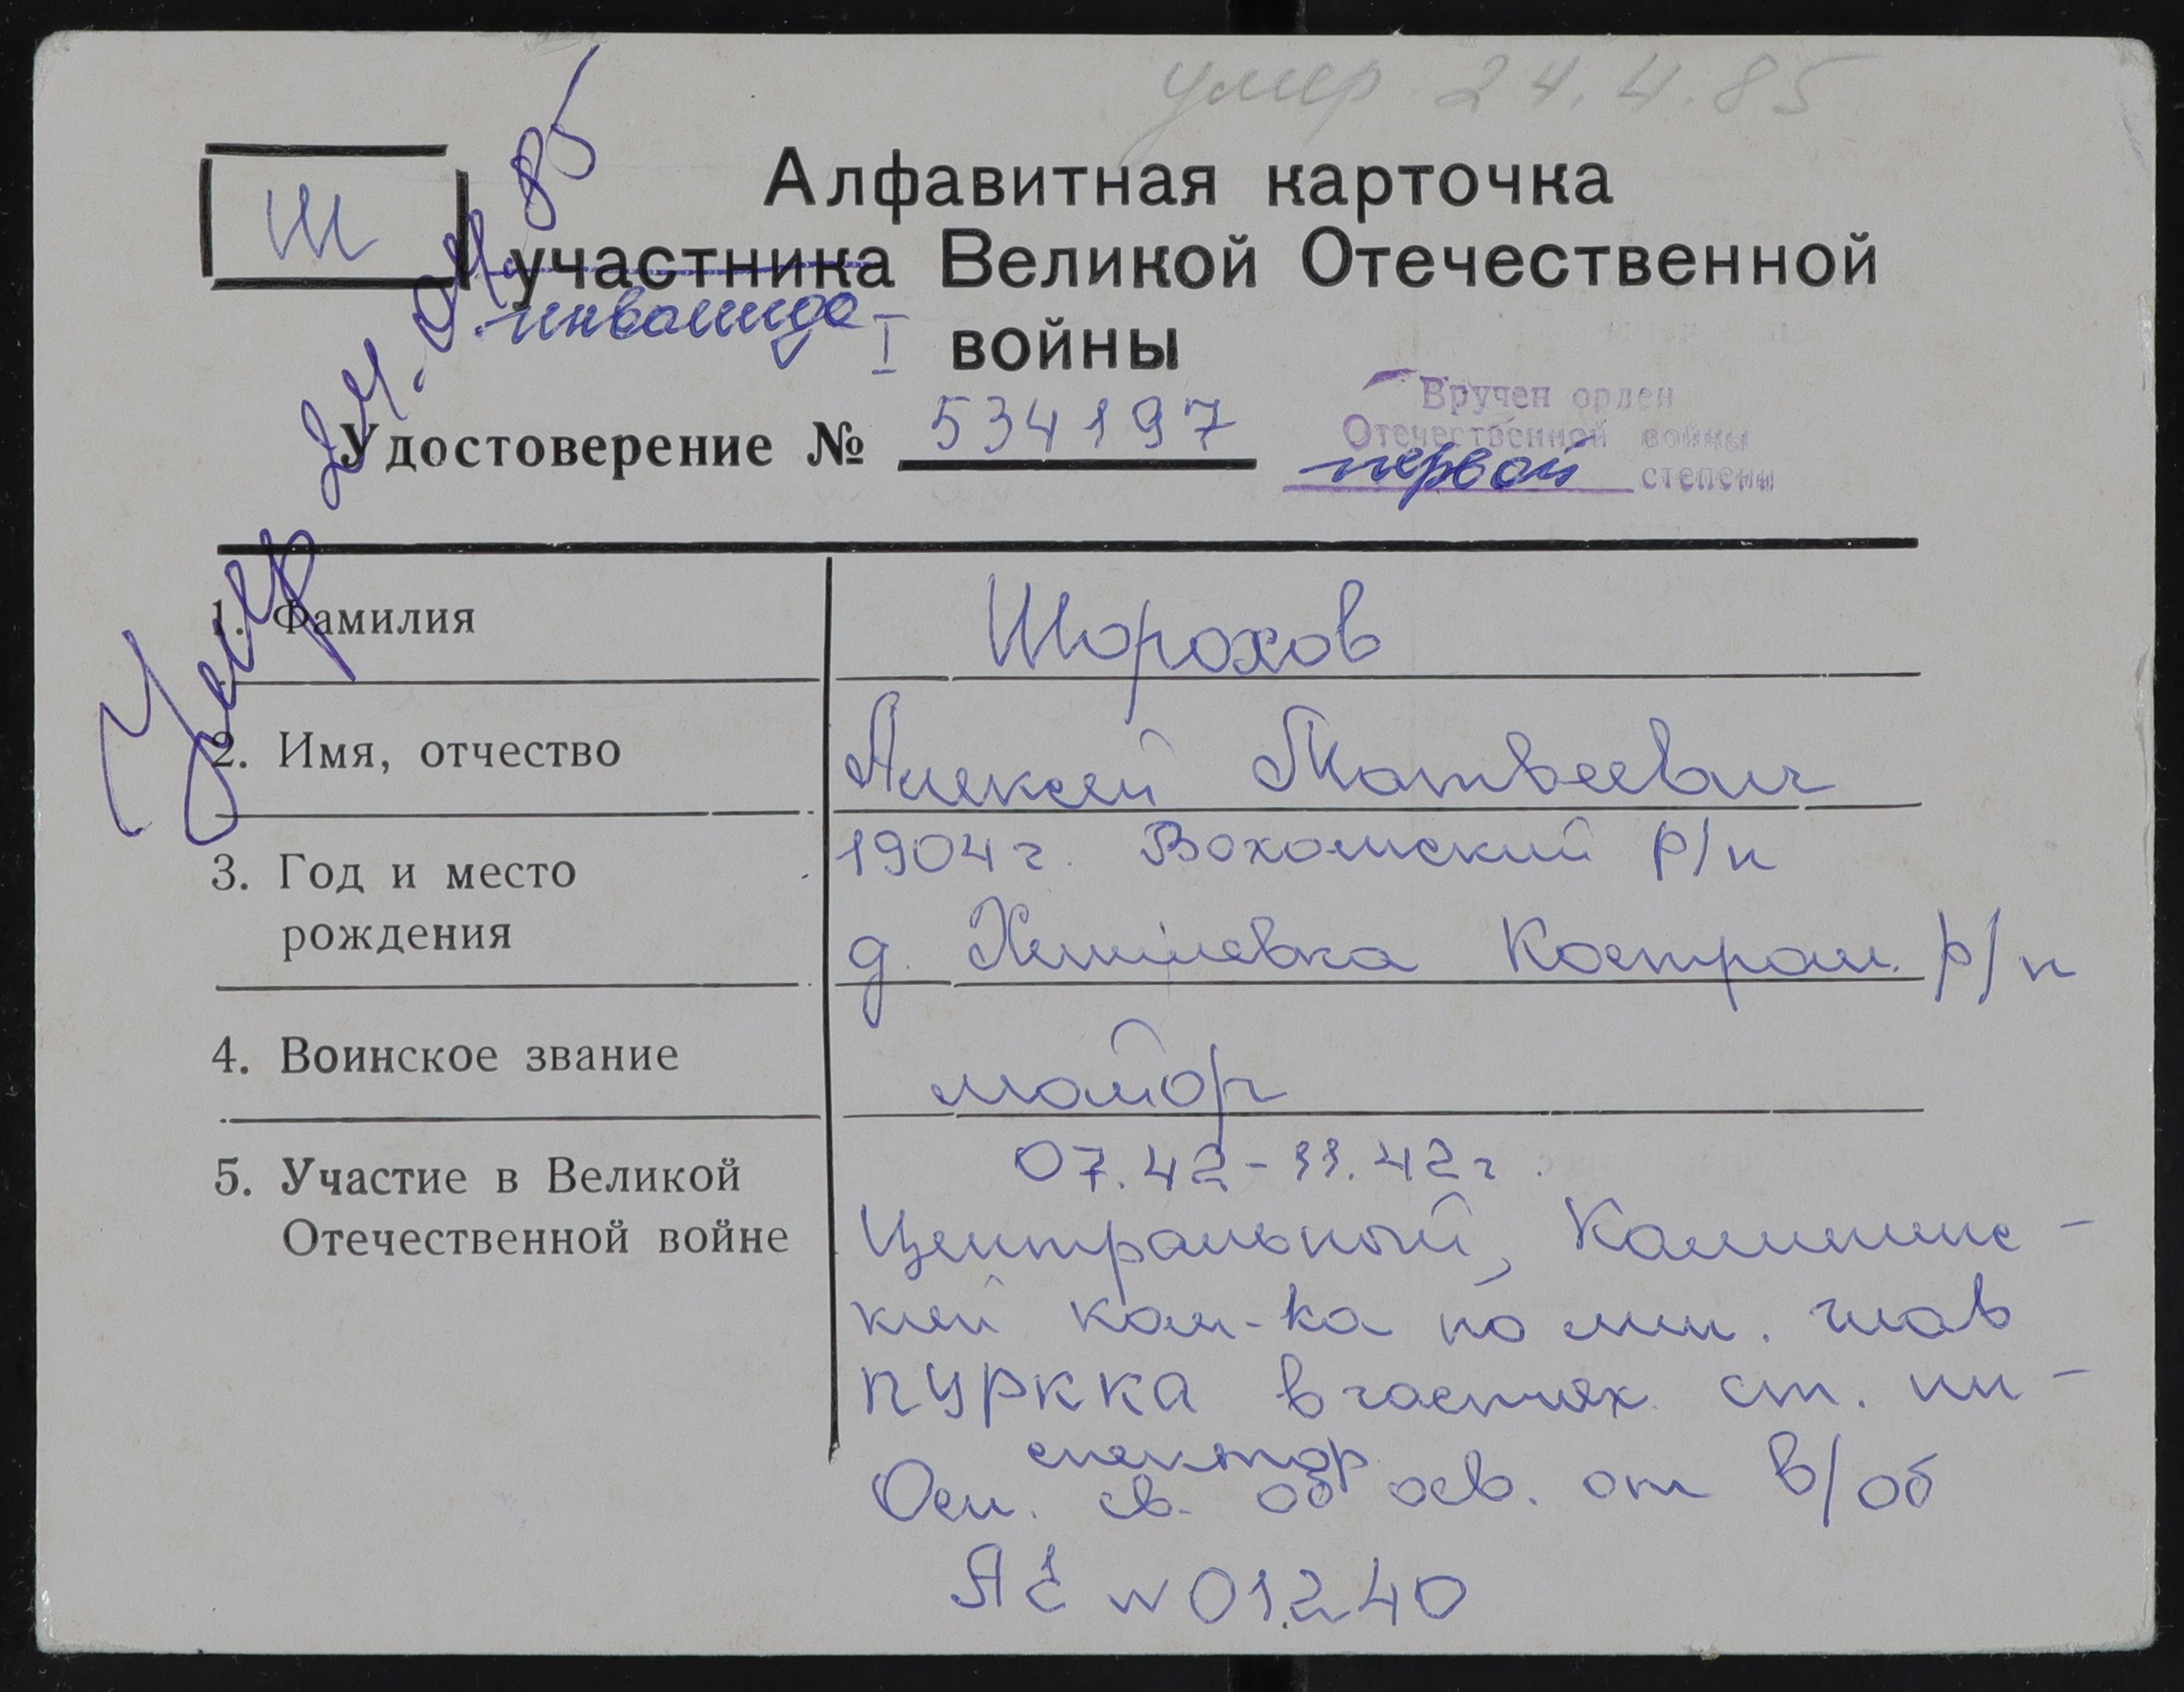 умер 24.4.85
Ш
Умер 24.04.85
Алфавитная карточка
участника Великой Отечественной
инвалида I войны
Удостоверение № 534197
Вручен орден
Отечественной войны
первой степени
1. Фамилия Шорохов
2. Имя, отчество Алексей Матвеевич
3. Год и место 1904 г. Вохомский р/н
рождения д. Костром. р/н
4. Воинское звание майор
5. Участие в Великой 07.42-11.42 г.
Отечественной войне Центральный, Калининс-
кий ком-ка по лин. глав
ПУРККА в частях ст. ин-
спектор
Осн. св. об осв. от в/об
№ 01240